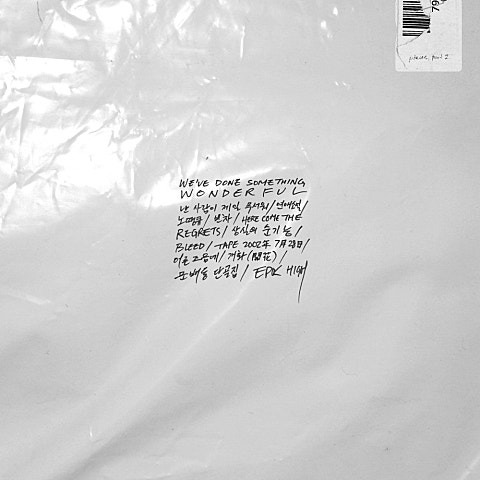 pieces, part 2
WE'VE DONE SOMETHING
WONDERFUL
난 사람이 제일 무서워/연애소설/
노땡큐/빈차/HERE COME THE
REGRETS/상실의 순기능/
BLEED/TAPE 2002年 7月 28日/
어른 /개화(開花)/
문배동 단골집/EPIK HIGH